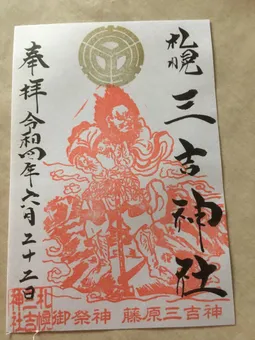 札幌
三吉神社
奉拝
令和四年六月二十二日
御祭神 藤原三吉神
札幌三吉神社